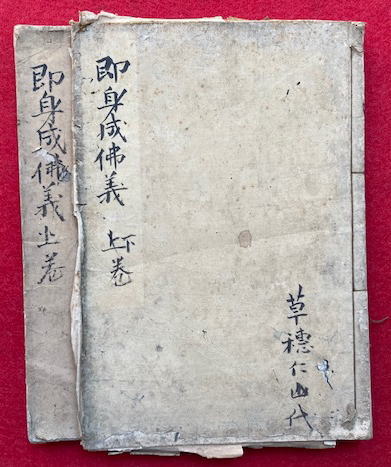 即身成佛義 上下巻
草穗仁山代
即身成佛義 上巻